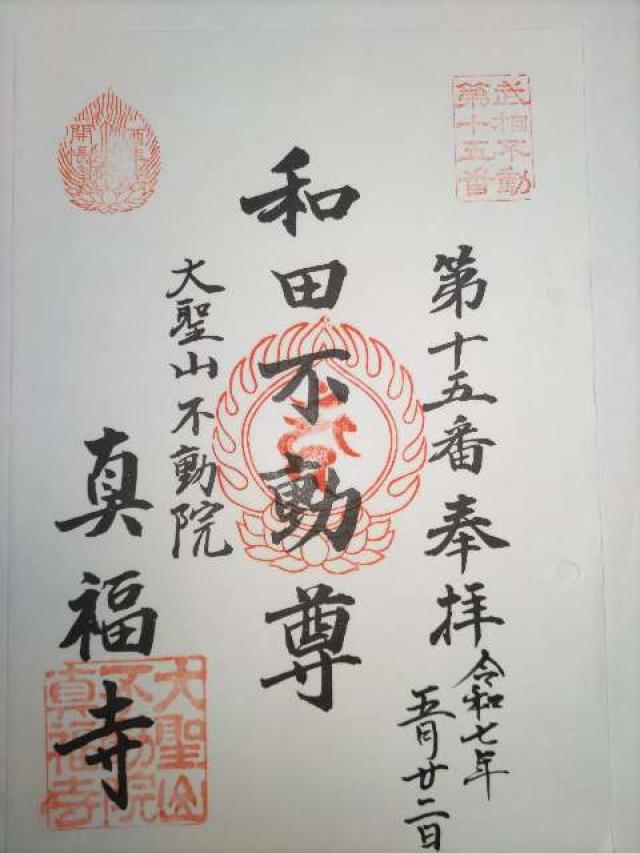 武相不動
第十五番
第十五番奉拝
令和七年
五月廿二日
和田不動尊
大聖山不動院
真福寺
酉年
開帳
大聖山
不動院
真福寺